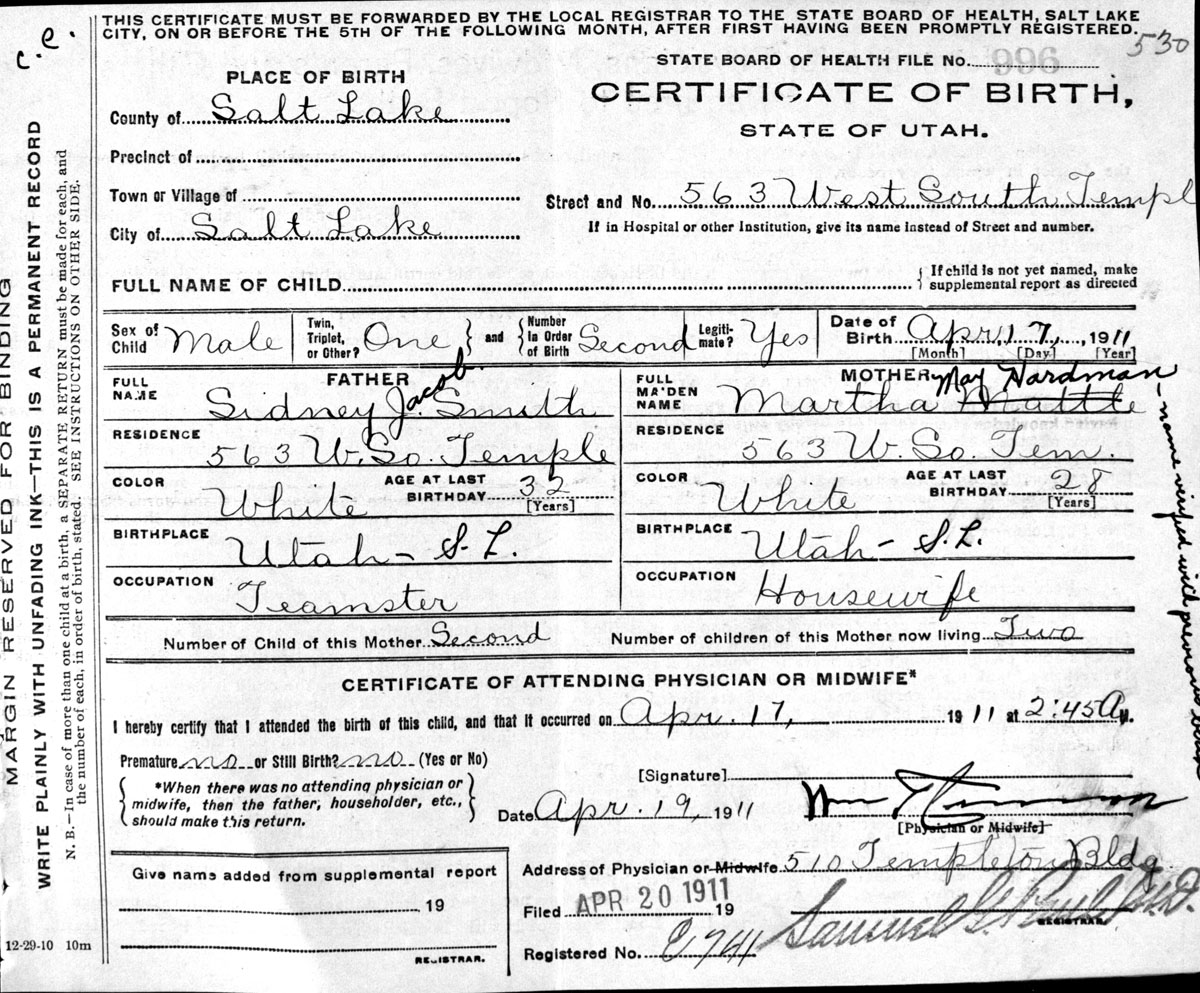 THIS CERTIFICATE MUST BE FORWARDED BY THE LOCAL REGISTRAR TO THE STATE BOARD OF HEALTH, SALT LAKE
CITY, ON OR BEFORE THE 5TH OF THE FOLLOWING MONTH, AFTER FIRST HAVING BEEN PROMPTLY REGISTERED.
c.e.
530
STATE BOARD OF HEALTH FILE No. 996
CERTIFICATE OF BIRTH,
STATE OF UTAH.
PLACE OF BIRTH
County of Salt Lake
Precinct of
Town or Village of
City of Salt Lake
Street and No. 563 West South Templ
If in Hospital or other Institution, give its name instead of Street and number.
FULL NAME OF CHILD
If child is not yet named, make
supplemental report as directed
Sex of Child Male
Twin, Triplet, or Other? One
and
Number in Order of Birth Second
Legiti-mate? Yes
Date of Birth Apr. 17, 1911
[Month] [Day] [Year]
FATHER
FULL NAME Sidney Jacob. Smith
RESIDENCE 563 W. So. Temple
COLOR White
AGE AT LAST BIRTHDAY 32
[Years]
BIRTHPLACE Utah - S.L.
OCCUPATION Teamster
MOTHER
FULL MAIDEN NAME Martha Mattle May Hardman
RESIDENCE 563 W. So. Tem.
COLOR White
AGE AT LAST BIRTHDAY 28
[Years]
BIRTHPLACE Utah - S.L.
OCCUPATION Housewife
Number of Child of this Mother Second
Number of children of this Mother now living Two
CERTIFICATE OF ATTENDING PHYSICIAN OR MIDWIFE*
I hereby certify that I attended the birth of this child, and that it occurred on Apr. 17, 1911 at 2:45 A M.
Premature no or Still Birth? no (Yes or No)
*When there was no attending physician or
midwife, then the father, householder, etc.,
should make this return.
[Signature]
Date Apr. 19, 1911
Wm
[Physician or Midwife]
Address of Physician or Midwife 510 Templeton Bldg.
Give name added from supplemental report
19
REGISTRAR.
Filed APR 20 1911 19
Samuel G. Paul M.D.
REGISTRAR.
Registered No.
12-29-10 10m
MARGIN RESERVED FOR BINDING
WRITE PLAINLY WITH UNFADING INK—THIS IS A PERMANENT RECORD
N. B.—In case of more than one child at a birth, a SEPARATE RETURN must be made for each, and
the number of each, in order of birth, stated. SEE INSTRUCTIONS ON OTHER SIDE.
- name verified with previous